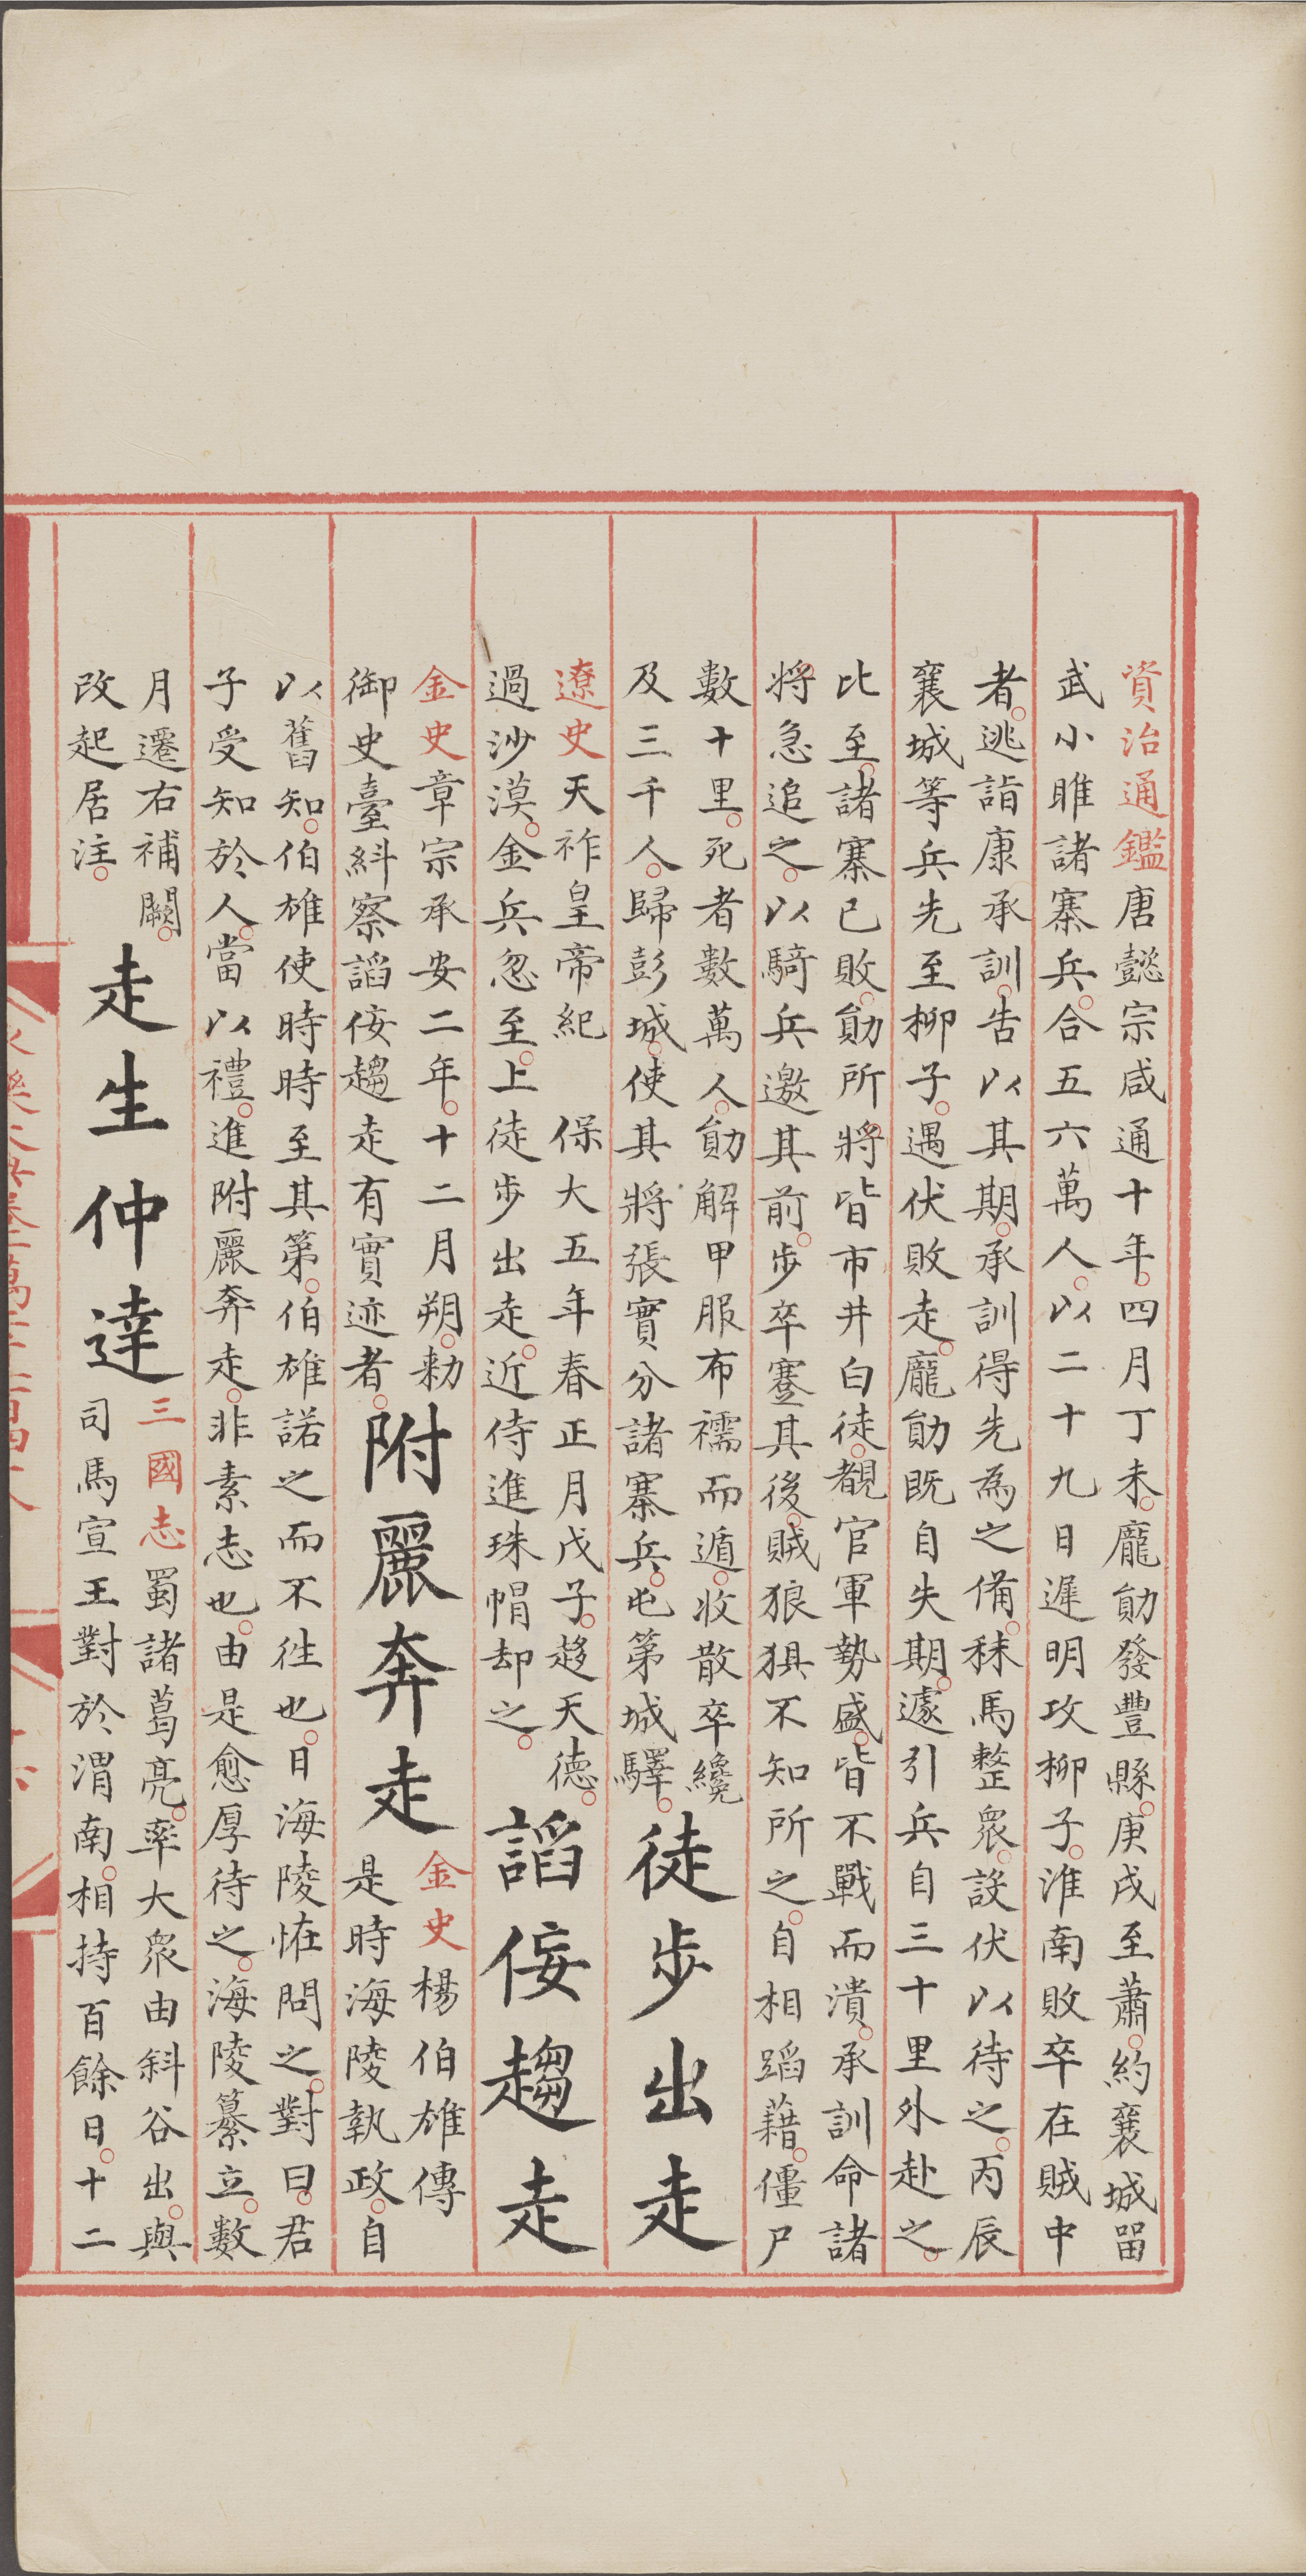 資治通鑑唐懿宗咸通十年四月丁未龐勛發豐縣庚戌至蕭約襄城留
武小睢諸寨兵合五六萬人以二十九日遲明攻柳子淮南敗卒在賊中
者逃詣康承訓告以其期承訓得先為之備秣馬整衆設伏以待之丙辰
襄城等兵先至柳子遇伏敗走龐勛既自失期遽引兵自三十里外赴之
比至諸寨已敗勛所將皆市井白徒覩官軍勢盛皆不戰而潰承訓命諸
將急追之以騎兵邀其前步卒蹙其後賊狼狽不知所之自相蹈藉僵尸
數十里死者數萬人勛解甲服布襦而遁收散卒纔
及三千人歸彭城使其將張實分諸寨兵屯第城驛
徒步出走
遼史天祚皇帝紀 保大五年春正月戊子趍天德
過沙漠金兵忽至上徒步出走近侍進珠帽却之
謟佞趨走
金史章宗承安二年十二月朔勑
御史臺糾察謟佞趨走有實迹者
附麗奔走
金史楊伯雄傳
是時海陵執政自
以舊知伯雄使時時至其第伯雄諾之而不往也日海陵恠問之對曰君
子受知於人當以禮進附麗奔走非素志也由是愈厚待之海陵纂立數
月遷右補闕
改起居注
走生仲達
三國志蜀諸葛亮率大衆由斜谷出與
司馬宣王對於渭南相持百餘日十二